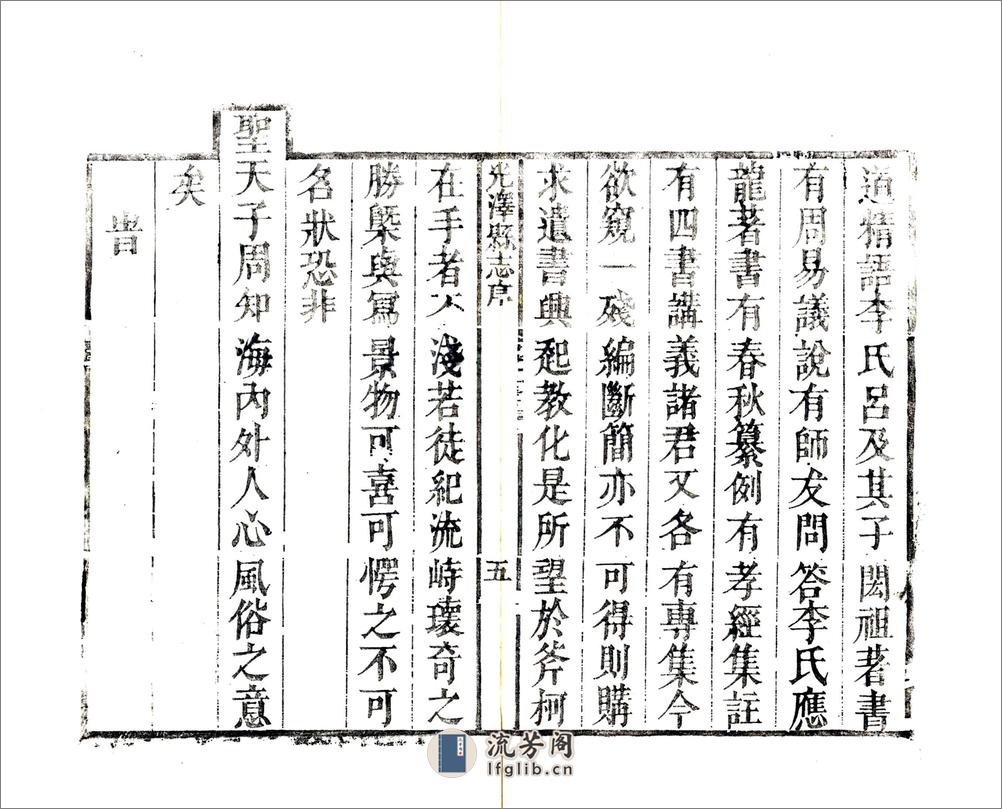 道精語李氏呂及其子閎祖著書
有周易議說有師友問答李氏應
龍著書有春秋纂例有孝經集註
有四書講義諸君又各有專集今
欲窺一殘編斷簡亦不可得則購
求遺書興起教化是所望於斧柯
光澤縣志序
五
在手者不淺若徒紀流峙瓌奇之
勝槩與寫景物可喜可愕之不可
名狀恐非
聖天子周知海內外人心風俗之意
矣
旹
流芳阁
lfglib.cn